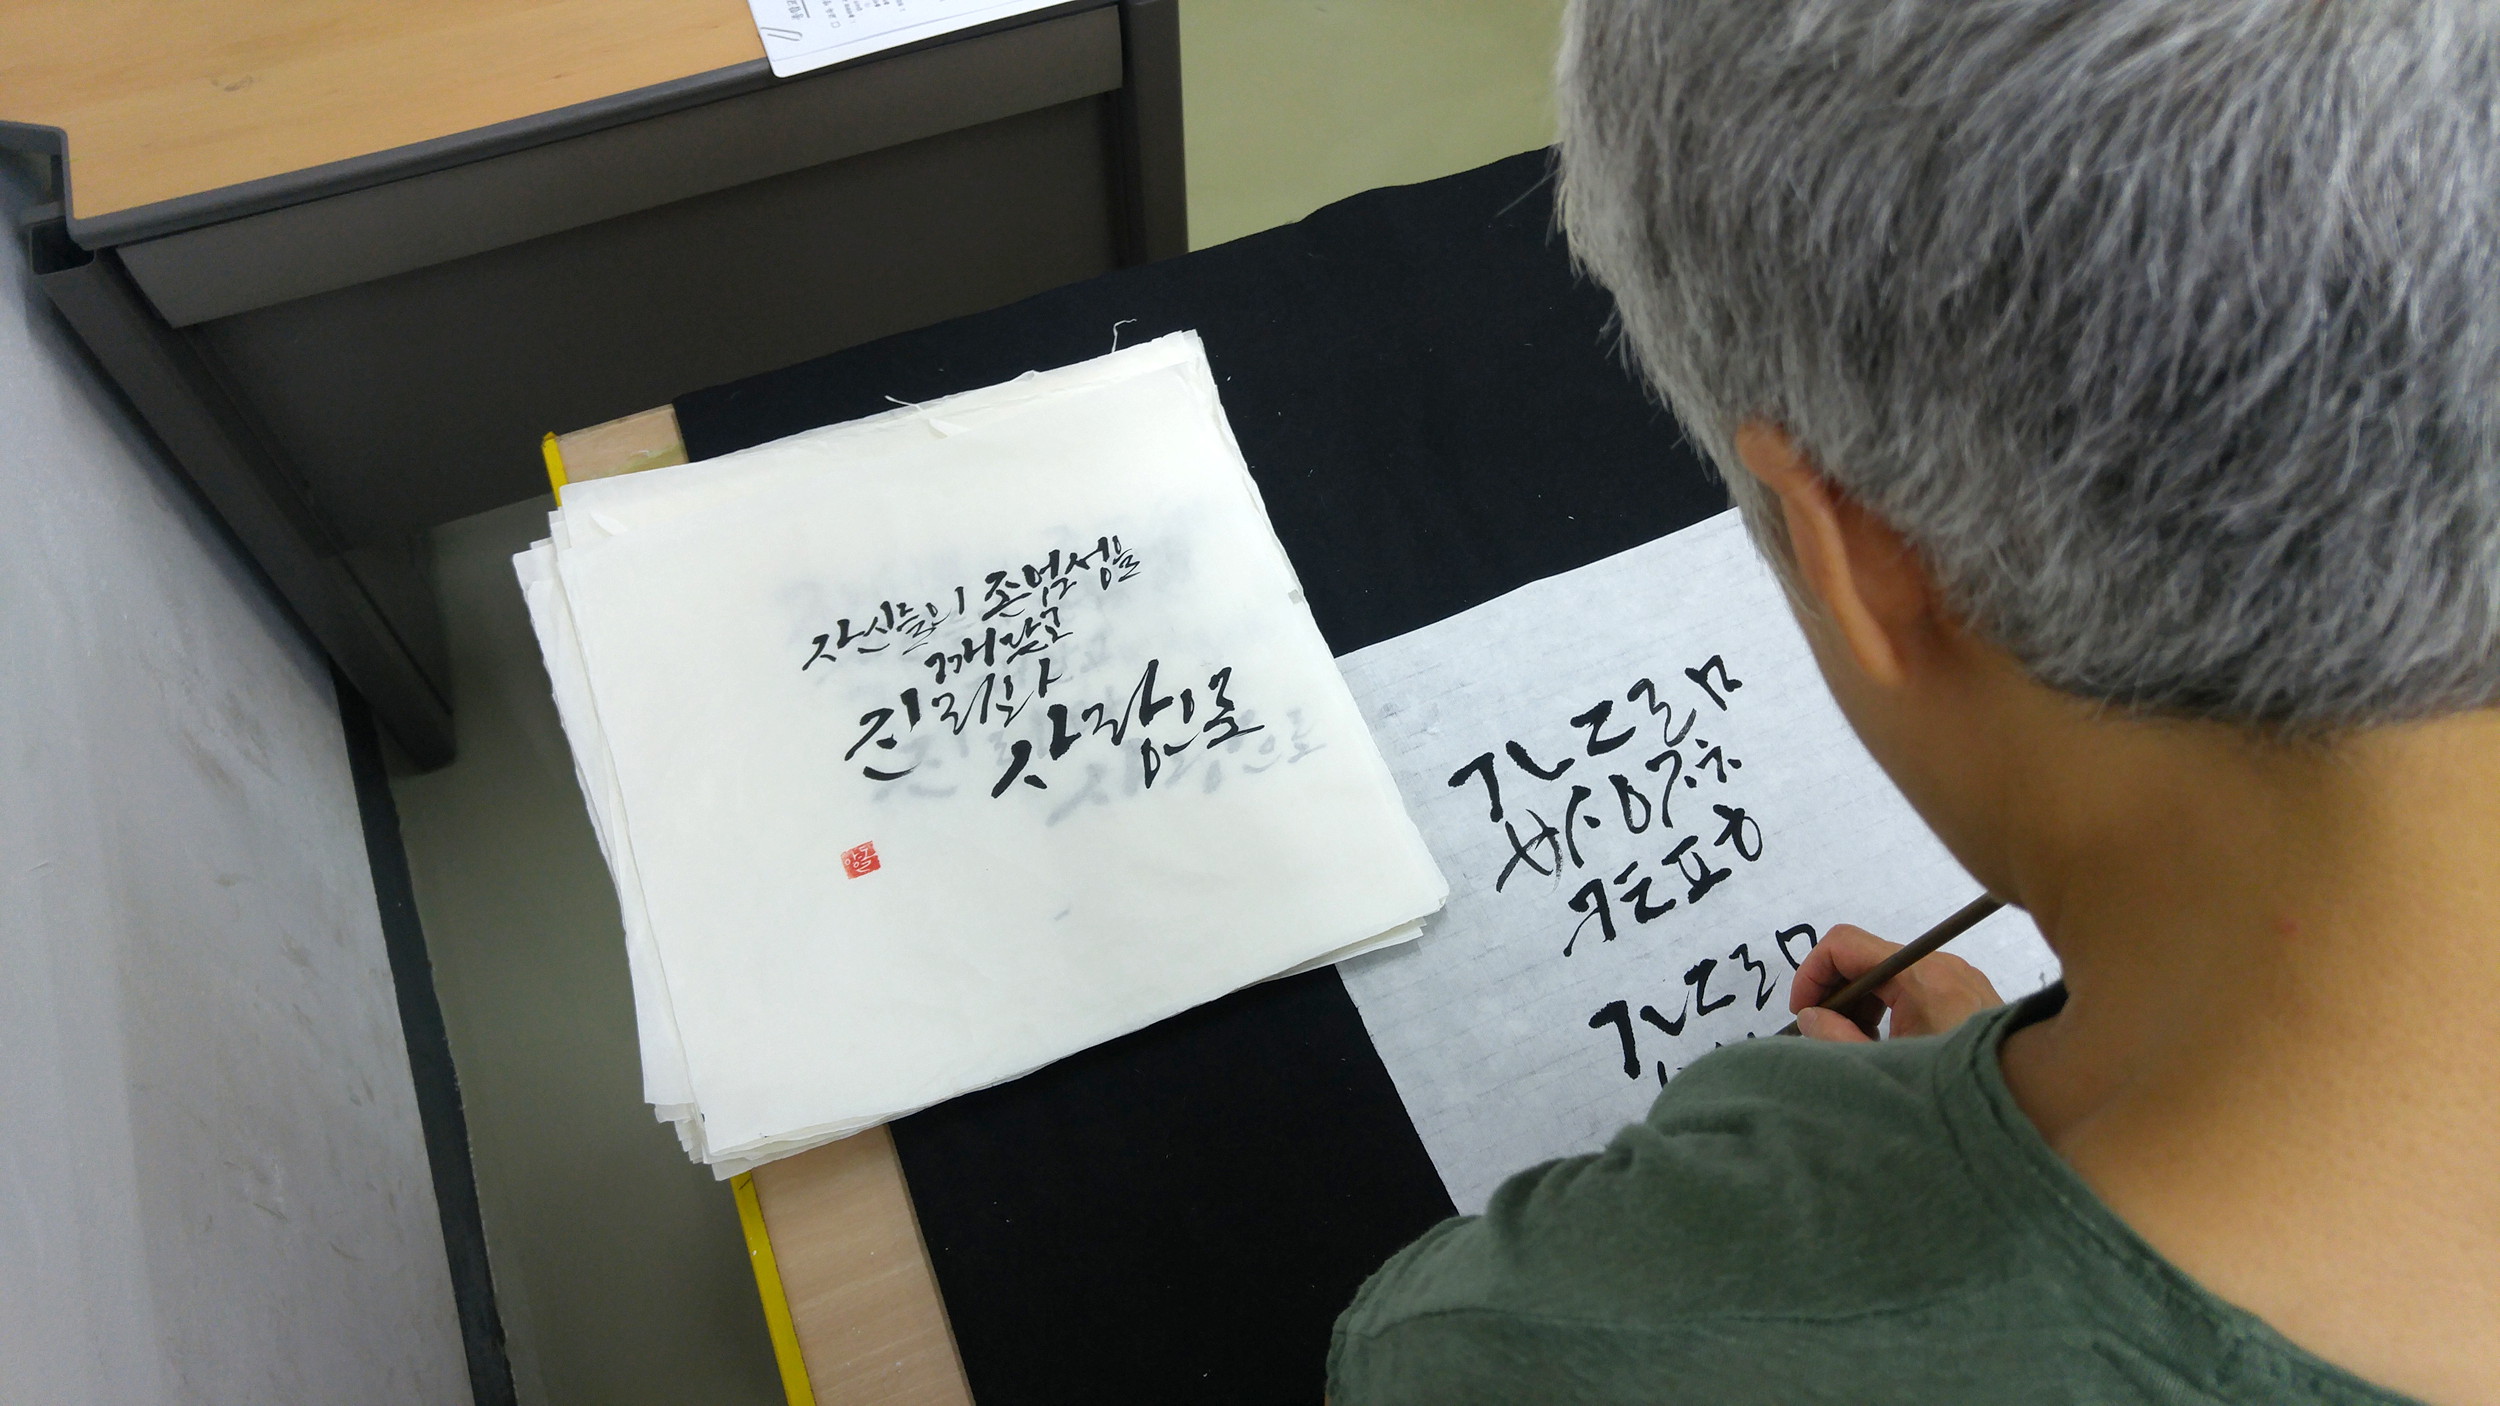 자신들의 존엄성을
깨닫고
진리와
사랑으로
ㄱㄴㄷㄹㅁ
ㅂㅅㅇㅈㅊ
ㅋㅌㅍㅎ
ㄱㄴㄷㄹㅁ